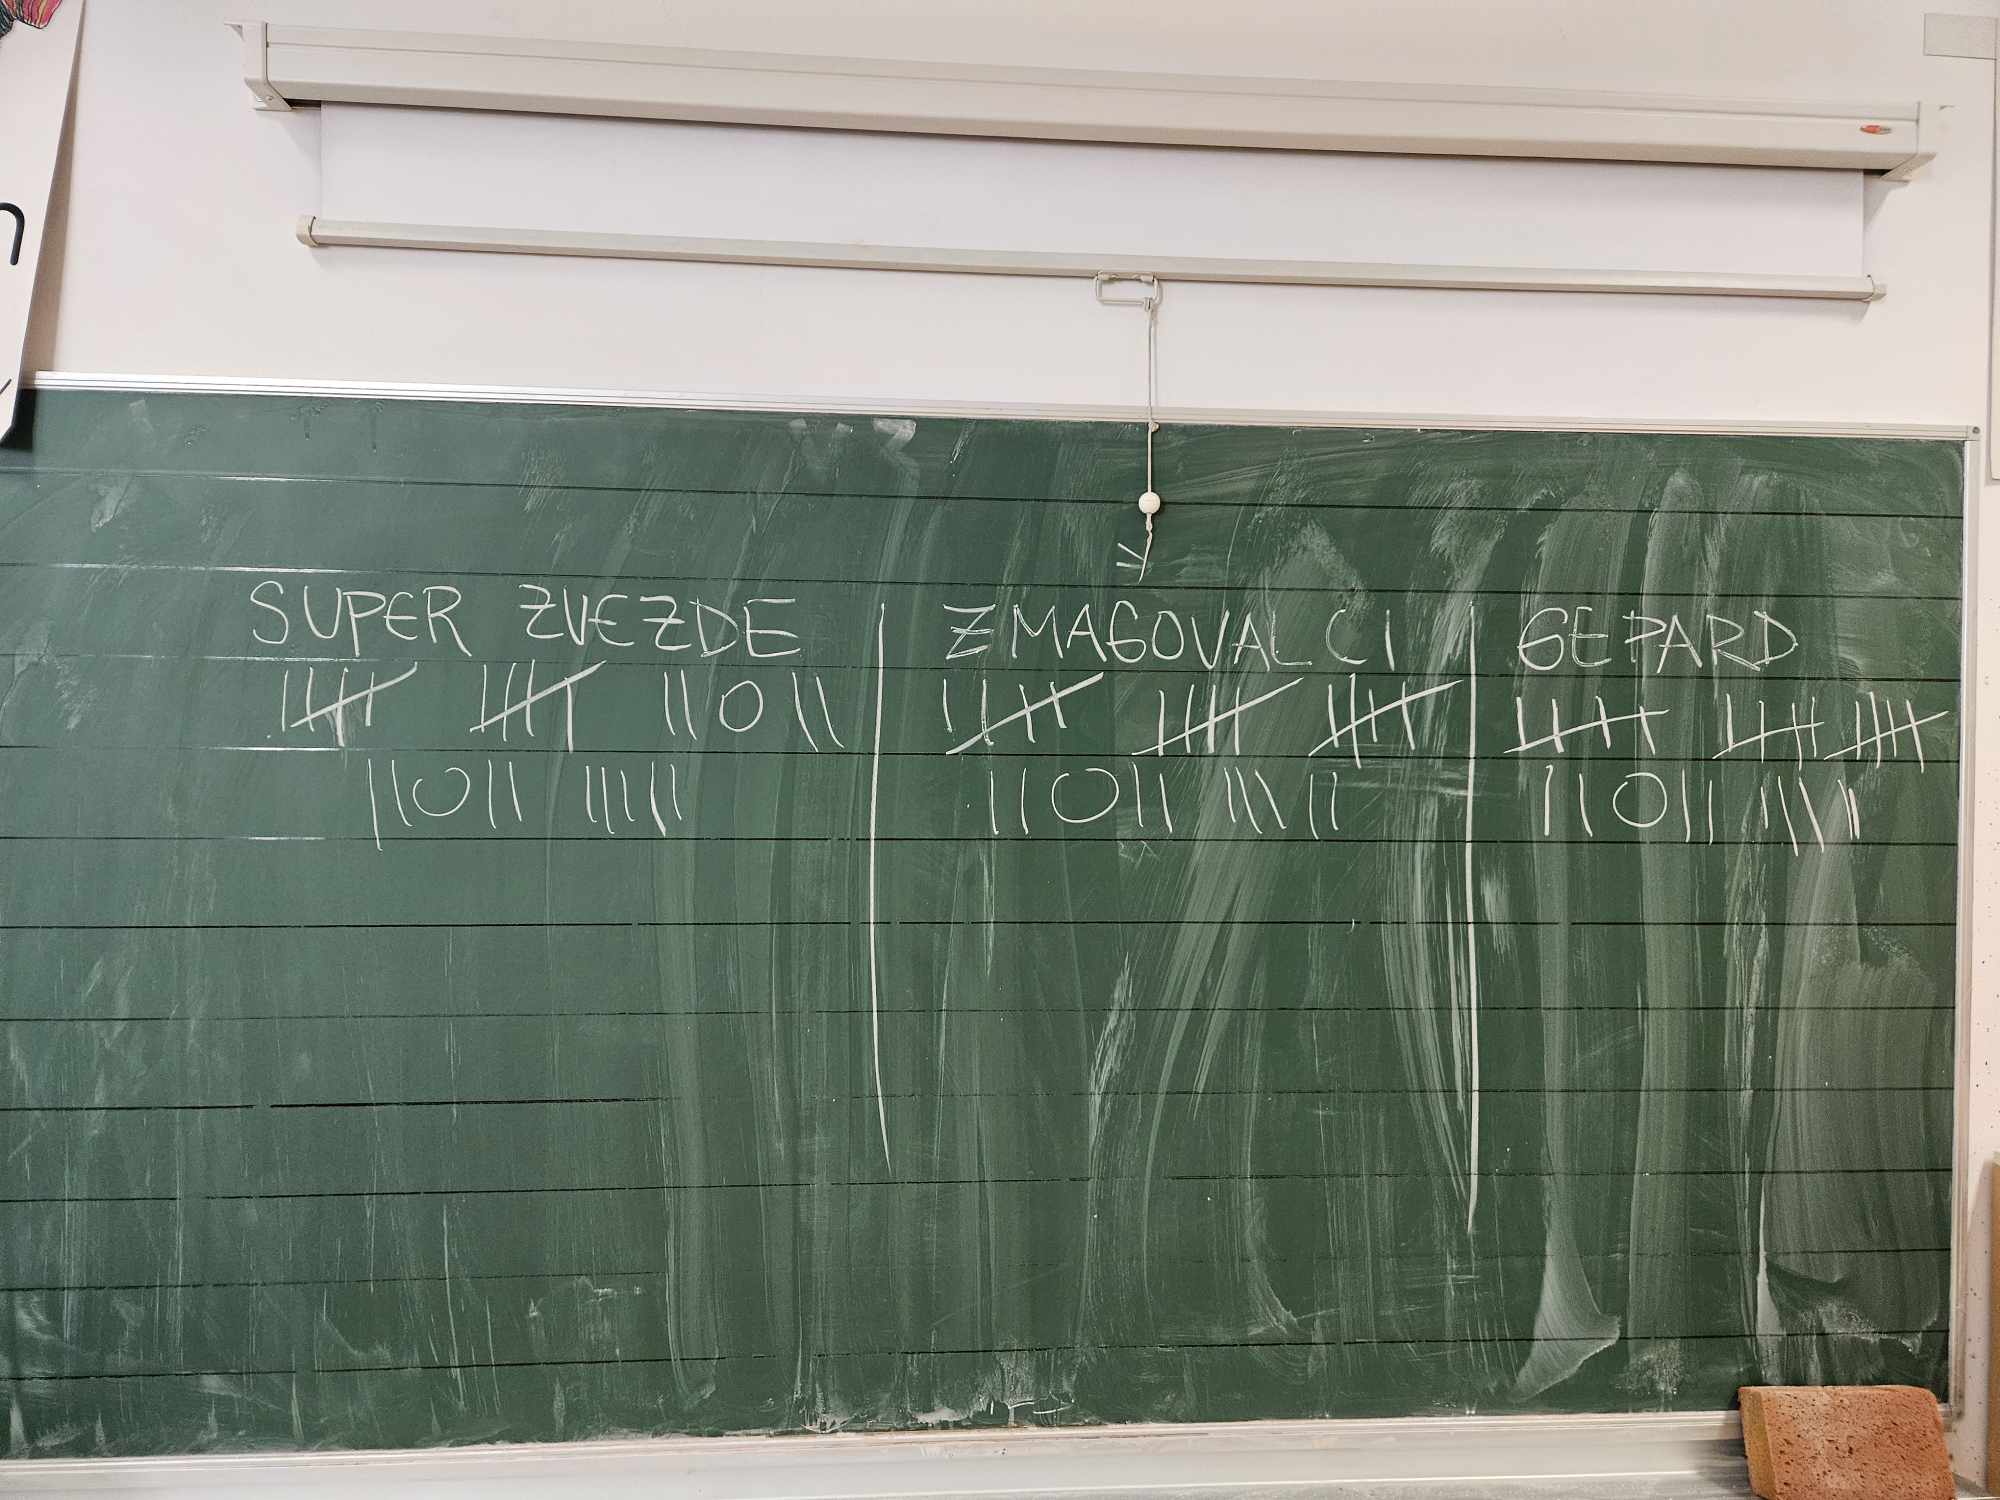 SUPER ZVEZDE
𝍸 𝍸 || O ||
|| O || |||||
ZMAGOVALCI
𝍸 𝍸 𝍸
|| O || ||| ||
GEPARD
𝍸 𝍸 𝍸
|| O || |||| ||